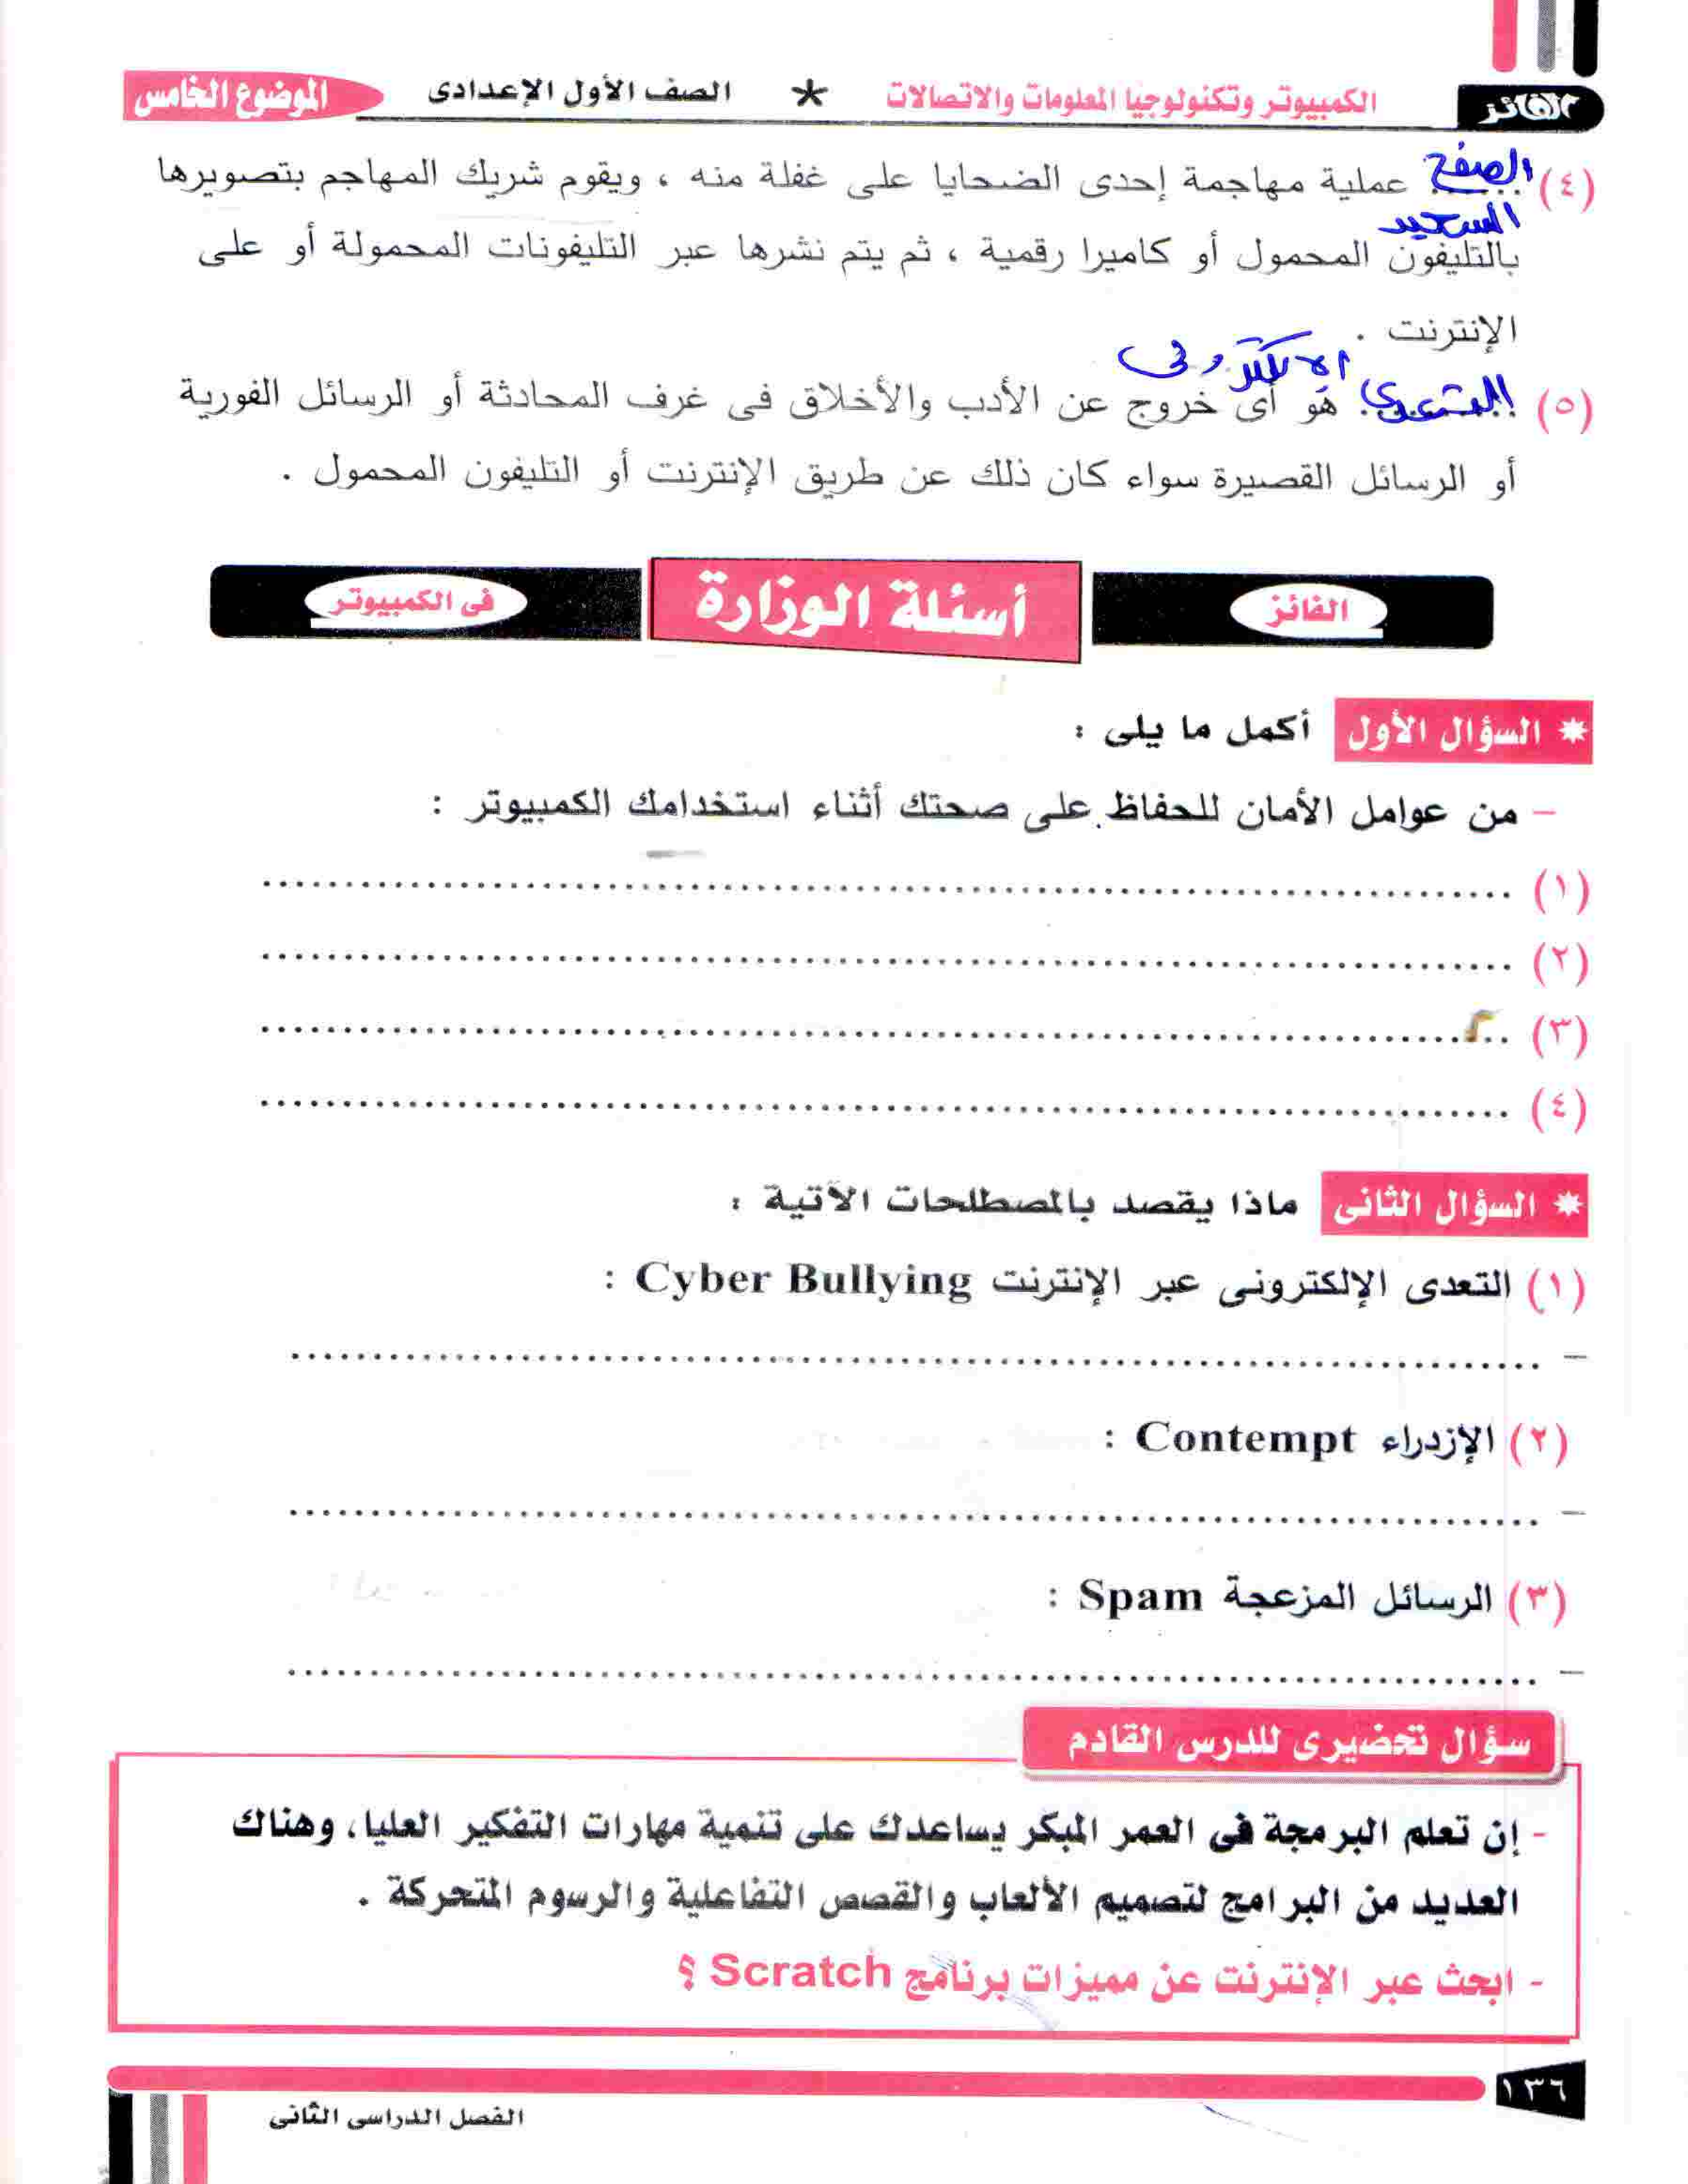 الفائز
الكمبيوتر وتكنولوجيا المعلومات والاتصالات * الصف الأول الإعدادى
الموضوع الخامس
(٤) الصفع عملية مهاجمة إحدى الضحايا على غفلة منه ، ويقوم شريك المهاجم بتصويرها
السعيد
بالتليفون المحمول أو كاميرا رقمية ، ثم يتم نشرها عبر التليفونات المحمولة أو على
الإنترنت .
الالكترونى
(٥) التعدى هو أى خروج عن الأدب والأخلاق فى غرف المحادثة أو الرسائل الفورية
أو الرسائل القصيرة سواء كان ذلك عن طريق الإنترنت أو التليفون المحمول .
الفائز أسئلة الوزارة فى الكمبيوتر
* السؤال الأول أكمل ما يلى :
- من عوامل الأمان للحفاظ على صحتك أثناء استخدامك الكمبيوتر :
(١) ........................................
(٢) ........................................
(٣) ........................................
(٤) ........................................
* السؤال الثانى ماذا يقصد بالمصطلحات الآتية :
(١) التعدى الإلكترونى عبر الإنترنت Cyber Bullying :
- ........................................
(٢) الإزدراء Contempt :
- ........................................
(٣) الرسائل المزعجة Spam :
- ........................................
سؤال تحضيرى للدرس القادم
- إن تعلم البرمجة فى العمر المبكر يساعدك على تنمية مهارات التفكير العليا، وهناك
العديد من البرامج لتصميم الألعاب والقصص التفاعلية والرسوم المتحركة .
- ابحث عبر الإنترنت عن مميزات برنامج Scratch ؟
١٣٦
الفصل الدراسى الثانى